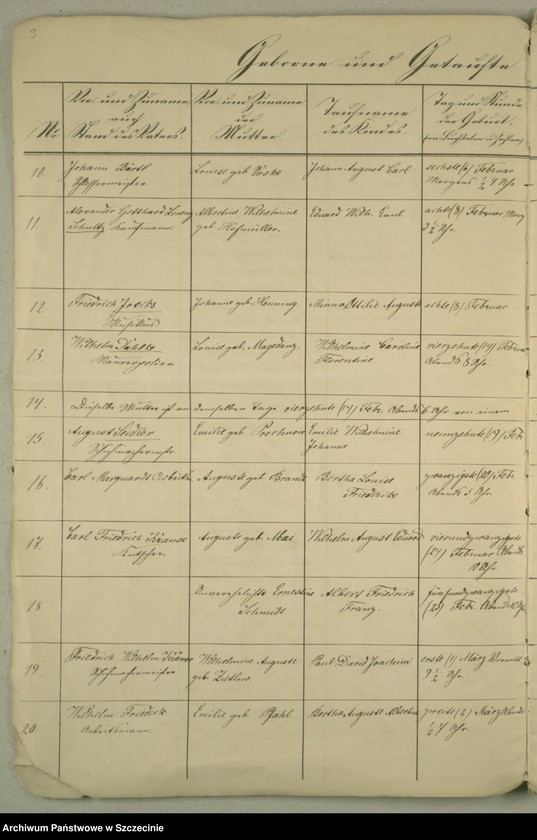 3
Geborne und Getaufte
No.
Vor und Zuname
auch
Stand des Vaters
Vor und Zuname
der
Mutter.
Taufname
des Kindes.
Tag und Stunde
der Geburt,
10.
Johann
Louise geb.
Johann August Carl
sechste (6) Februar
Morgens ½ 4 Uhr
11.
Alexander Gotthard
Schultz Kaufmann.
Albertine Wilhelmine
geb. Hofmüller.
Eduard Wilh. Emil
achte (8) Februar
½ Uhr.
12.
Friedrich
Musikus.
Johanne geb. Henning.
Minna Ottilie Auguste
achte (8) Februar
13.
Wilhelm
Louise geb.
Wilhelmine Caroline
Florentine
vierzehnte (14) Februar
Abends 8 Uhr.
14.
Dieselbe Mutter ist an demselben Tage vierzehnte (14) Febr. Abends Uhr von einem
15.
August
Emilie geb.
Emilie Wilhelmine
Johanne
neunzehnte (19) Feb
16.
Carl Marquardt
Auguste geb. Brandt
Bertha Louise
Friederike
zwanzigste (20) Febr.
Abends 5 Uhr.
17.
Carl Friedrich Krause
Kutscher.
Auguste geb. Mai
Wilhelm August Eduard
vierundzwanzigste
(24) Februar Abends
Uhr.
18
Unverehelichte Ernestine
Schmidt
Albert Friedrich
Franz.
fünfundzwanzigste
(25) Febr. Abends Uhr
19.
Friedrich Wilhelm
Schuhmachermeister
Wilhelmine Auguste
geb.
Paul David Joachim
erste (1) März
9 ½ Uhr.
20
Wilhelm
Arbeitsmann.
Emilie geb. Pahl
Bertha Auguste Albertine
zweite (2) März Abends
½ 7 Uhr.
Archiwum Państwowe w Szczecinie